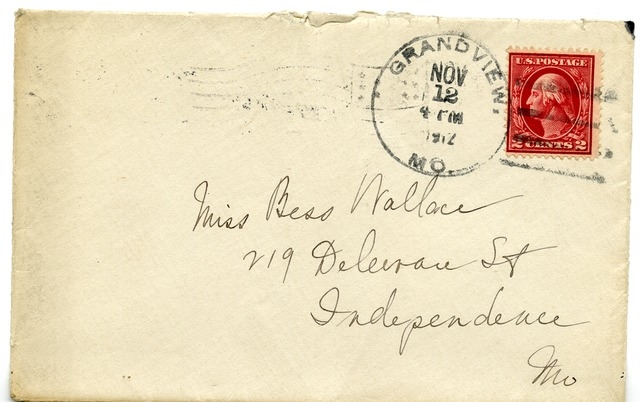 GRANDVIEW,
NOV
12
4 PM
1912
MO.
U.S. POSTAGE
2 CENTS 2
Miss Bess Wallace
219 Delewan St
Independence
Mo